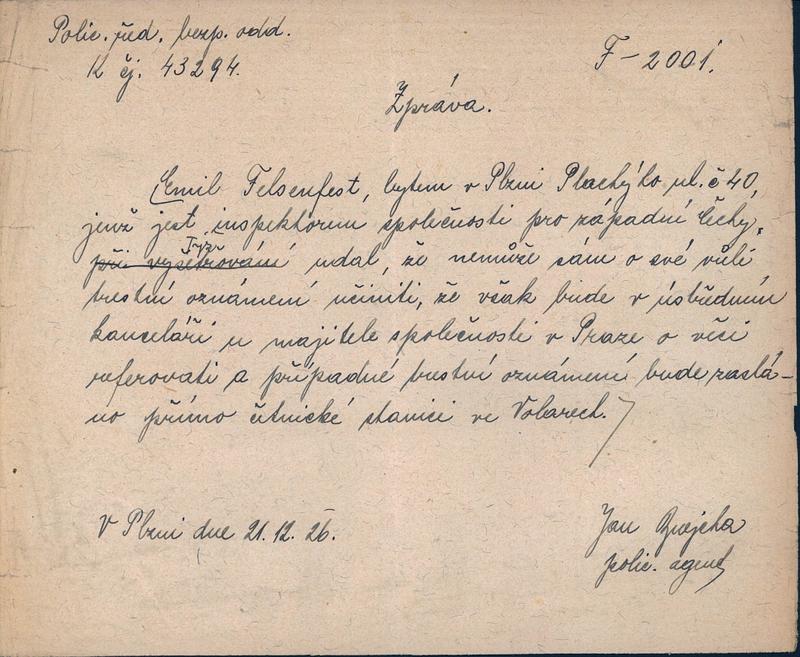 Polic. řed. bezp. odd.
K čj. 43294.
F – 2001.
Zpráva.
Emil Felsenfest, bytem v Plzni Plachýho ul. č 40,
jenž jest inspektorem společnosti pro západní Čechy,
při vyšetřování udal, že nemůže sám o své vůli
trestní oznámení učiniti, že však bude v ústředním
kanceláři u majitele společnosti v Praze o věci
referovati a případné trestní oznámení bude zaslá-
no přímo četnické stanici ve Volarech.
V Plzni dne 21.12. 26.
Jan
polic. agent